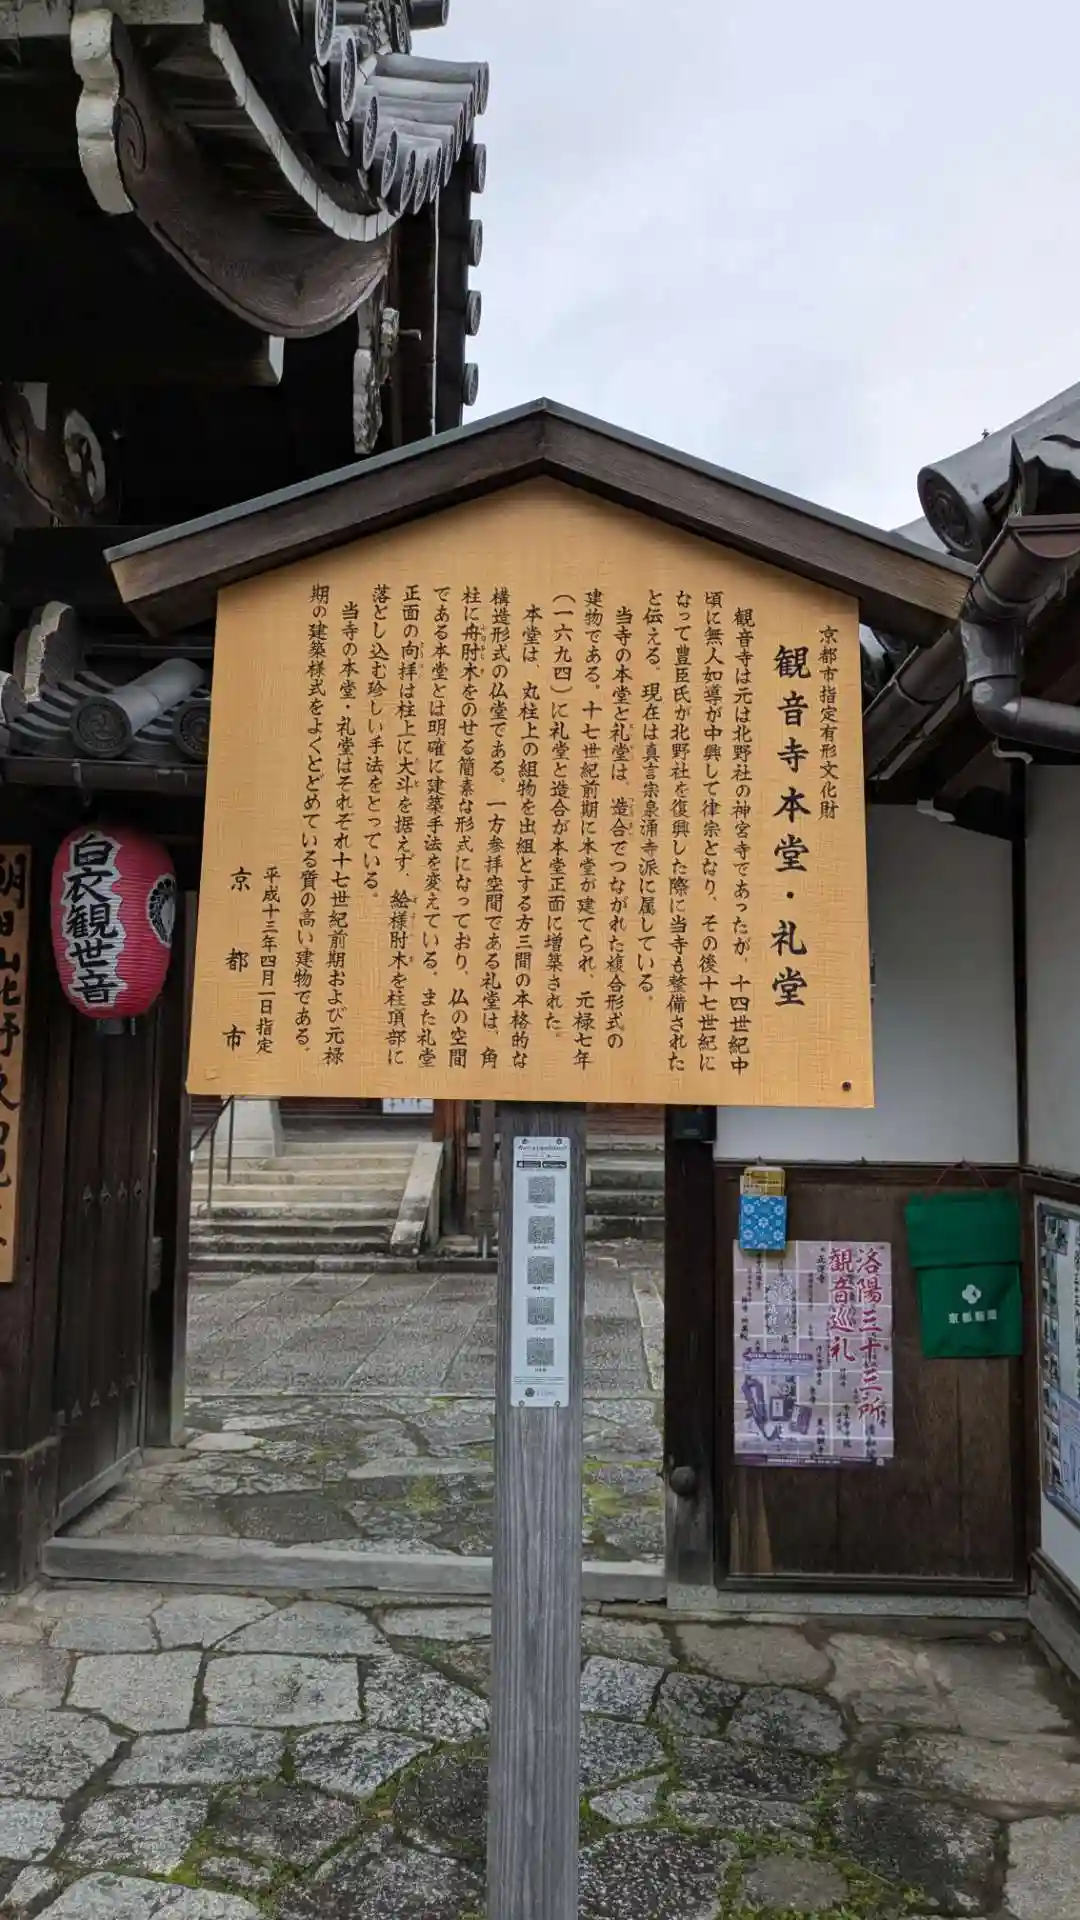 京都市指定有形文化財
観音寺本堂・礼堂
観音寺は元は北野社の神宮寺であったが、十四世紀中
頃に無人如導が中興して律宗となり、その後十七世紀に
なって豊臣氏が北野社を復興した際に当寺も整備された
と伝える。現在は真言宗泉涌寺派に属している。
当寺の本堂と礼堂は、造合でつながれた複合形式の
建物である。十七世紀前期に本堂が建てられ、元禄七年
(一六九四)に礼堂と造合が本堂正面に増築された。
本堂は、丸柱上の組物を出組とする方三間の本格的な
構造形式の仏堂である。一方参拝空間である礼堂は、角
柱に舟肘木をのせる簡素な形式になっており、仏の空間
である本堂とは明確に建築手法を変えている。また礼堂
正面の向拝は柱上に大斗を据えず、絵様肘木を柱頂部に
落とし込む珍しい手法をとっている。
当寺の本堂・礼堂はそれぞれ十七世紀前期および元禄
期の建築様式をよくとどめている質の高い建物である。
平成十三年四月一日指定
京都市
白衣観世音
洛陽三十三所
観音巡礼
京都新聞